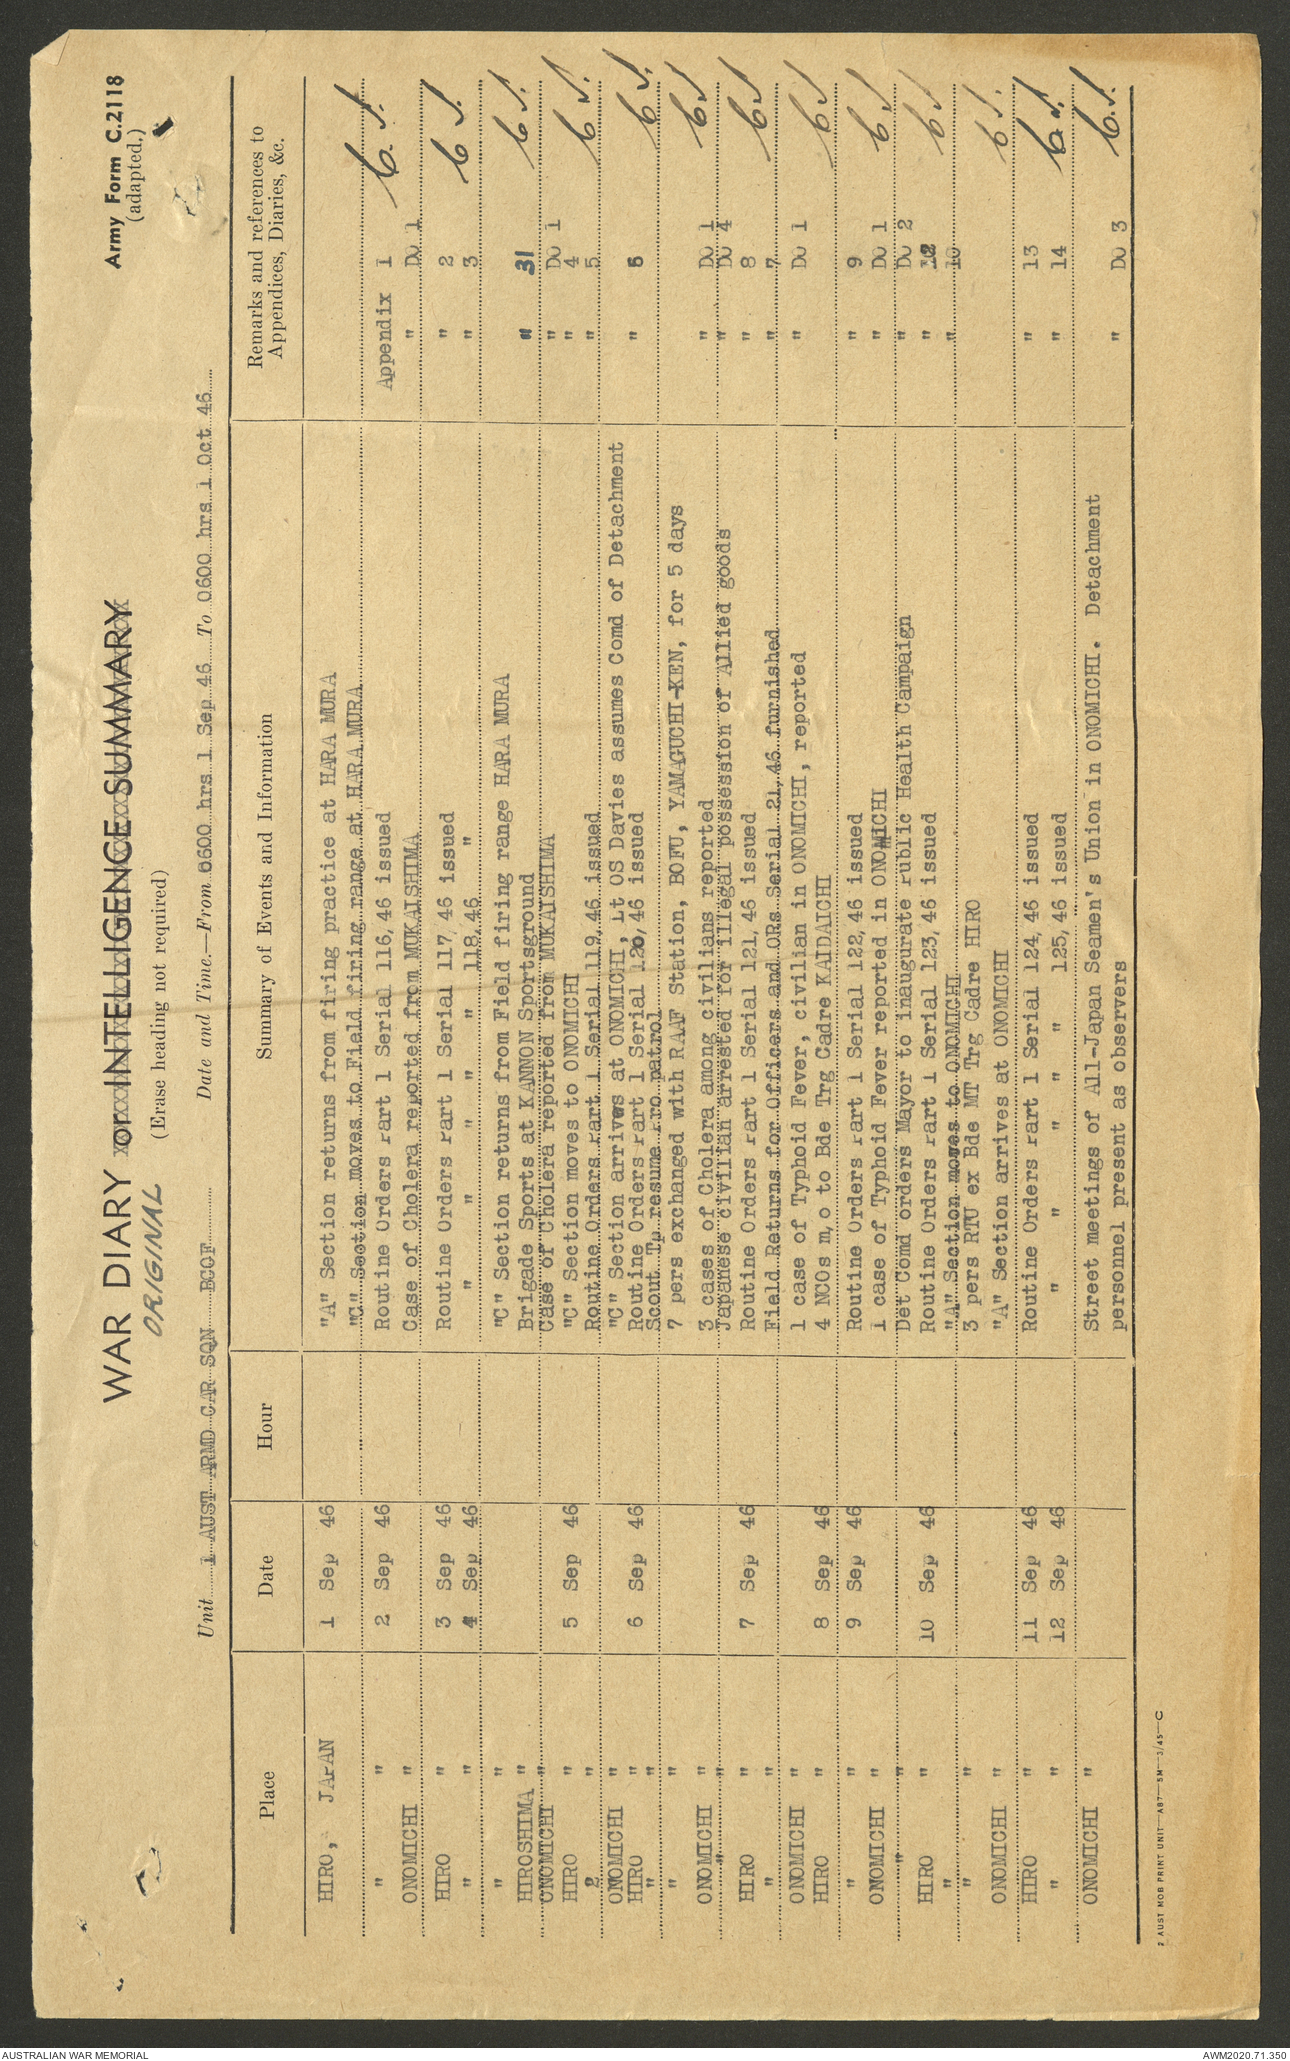 Army Form C.2118
(adapted.)
WAR DIARY or INTELLIGENCE SUMMARY
ORIGINAL
(Erase heading not required)
Unit 1 AUST ARMD CAR SQN BCOF Date and Time.—From 0600 hrs 1 Sep 46 To 0600 hrs 1 Oct 46
Place Date Hour Summary of Events and Information Remarks and references to Appendices, Diaries, &c.
HIRO, JAPAN 1 Sep 46 "A" Section returns from firing practice at HARA MURA
"C" Section moves to Field firing range at HARA MURA
" " 2 Sep 46 Routine Orders Part 1 Serial 116/46 issued Appendix 1 C.S.
ONOMICHI " Case of Cholera reported from MUKAISHIMA " Do 1
HIRO " 3 Sep 46 Routine Orders Part 1 Serial 117/46 issued " 2 C S.
" " 4 Sep 46 " " " " 118/46 " " 3
" " "C" Section returns from Field firing range HARA MURA
HIROSHIMA " Brigade Sports at KANNON Sportsground " 31 C S.
ONOMICHI " Case of Cholera reported from MUKAISHIMA " Do 1
HIRO " 5 Sep 46 "C" Section moves to ONOMICHI " 4 C S.
" " Routine Orders Part 1 Serial 119/46 issued " 5
ONOMICHI " "C" Section arrives at ONOMICHI, Lt OS Davies assumes Comd of Detachment
HIRO " 6 Sep 46 Routine Orders Part 1 Serial 120/46 issued " 6 C S.
" " Scout Tp resume Pro patrol
" " 7 pers exchanged with RAAF Station, BOFU, YAMAGUCHI-KEN, for 5 days
ONOMICHI " 3 cases of Cholera among civilians reported " Do 1 C S
" " Japanese civilian arrested for illegal possession of Allied goods " Do 4
HIRO " 7 Sep 46 Routine Orders Part 1 Serial 121/46 issued " 8 C S
" " Field Returns for Officers and ORs Serial 21/46 furnished " 7
ONOMICHI " 1 case of Typhoid Fever, civilian in ONOMICHI, reported " Do 1
HIRO " 8 Sep 46 4 NCOs m/o to Bde Trg Cadre KAIDAICHI C S
" " 9 Sep 46 Routine Orders Part 1 Serial 122/46 issued " 9
ONOMICHI " 1 case of Typhoid Fever reported in ONOMICHI " Do 1 C S
" " Det Comd orders Mayor to inaugurate Public Health Campaign " Do 2
HIRO " 10 Sep 46 Routine Orders Part 1 Serial 123/46 issued " 12 C S
" "A" Section moves to ONOMICHI " 10
" " 3 pers RTU ex Bde MT Trg Cadre HIRO
ONOMICHI " "A" Section arrives at ONOMICHI C S.
HIRO " 11 Sep 46 Routine Orders Part 1 Serial 124/46 issued " 13
" " 12 Sep 46 " " " " 125/46 issued " 14 C.S.
ONOMICHI " Street meetings of All-Japan Seamen's Union in ONOMICHI. Detachment
personnel present as observers " Do 3 C.S.
2 AUST MOB PRINT UNIT—A87—5M—3/45—C
AUSTRALIAN WAR MEMORIAL
AWM2020.71.350